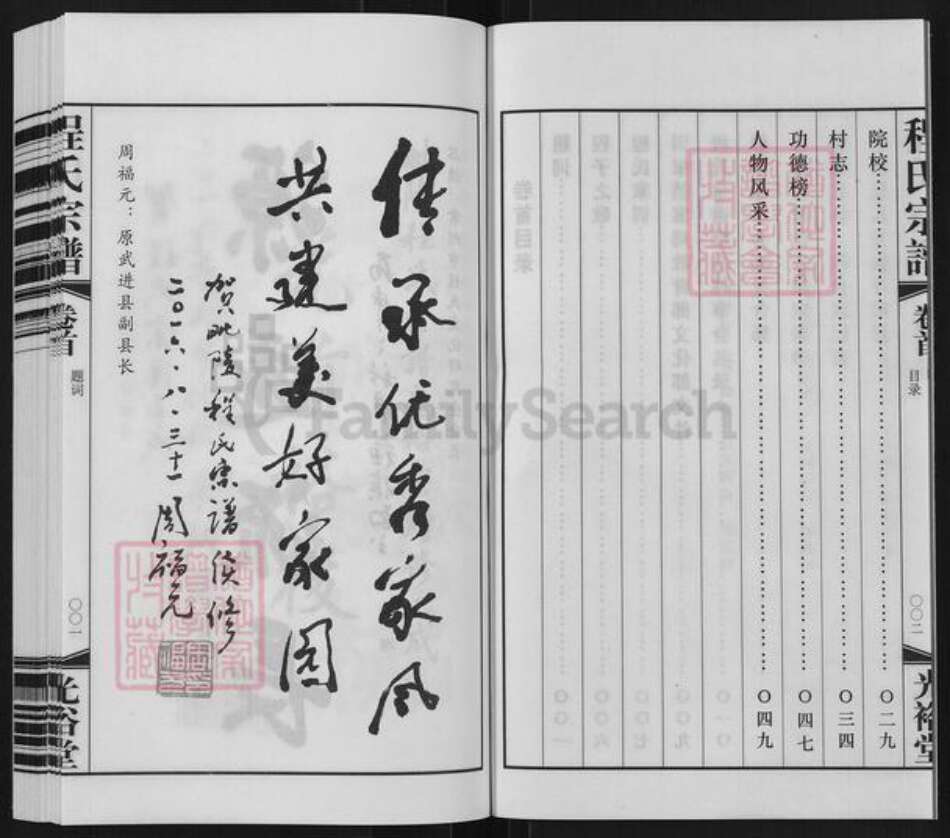 程氏宗譜
卷首
目录
〇〇二
光裕堂
院校 〇二九
村志 〇三四
功德榜 〇四七
人物风采 〇四九
传承优秀家风
共建美好家园
贺毗陵程氏宗谱续修
二〇一六·八·三十一 周福元
周福元：原武进县副县长
程氏宗譜
卷首
题词
〇〇一
光裕堂
FamilySearch